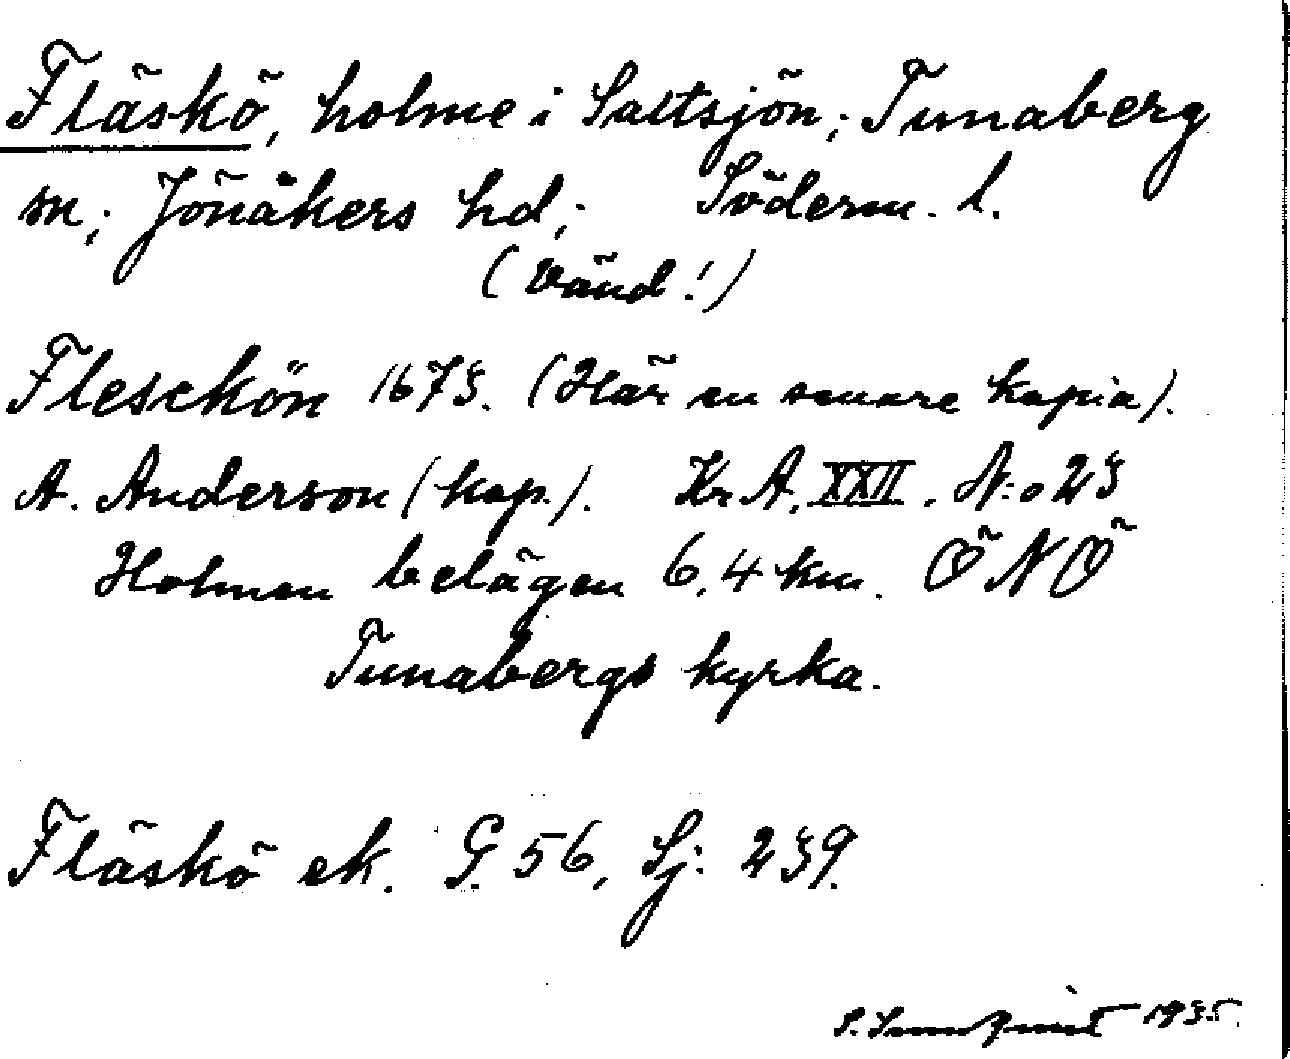 Fläskö, holme i Saltsjön; Tunaberg
sn; Jönåkers hd; Söderm. l.
(Vänd!)
Flesckön 1673. (Här en senare kopia).
A. Anderson (kop.). Kr. A. XXII. N:o 23
Holmen belägen 6,4 km. ÖNÖ
Tunabergs kyrka.
Fläskö ek. G. 56, Sj: 239.
1935.